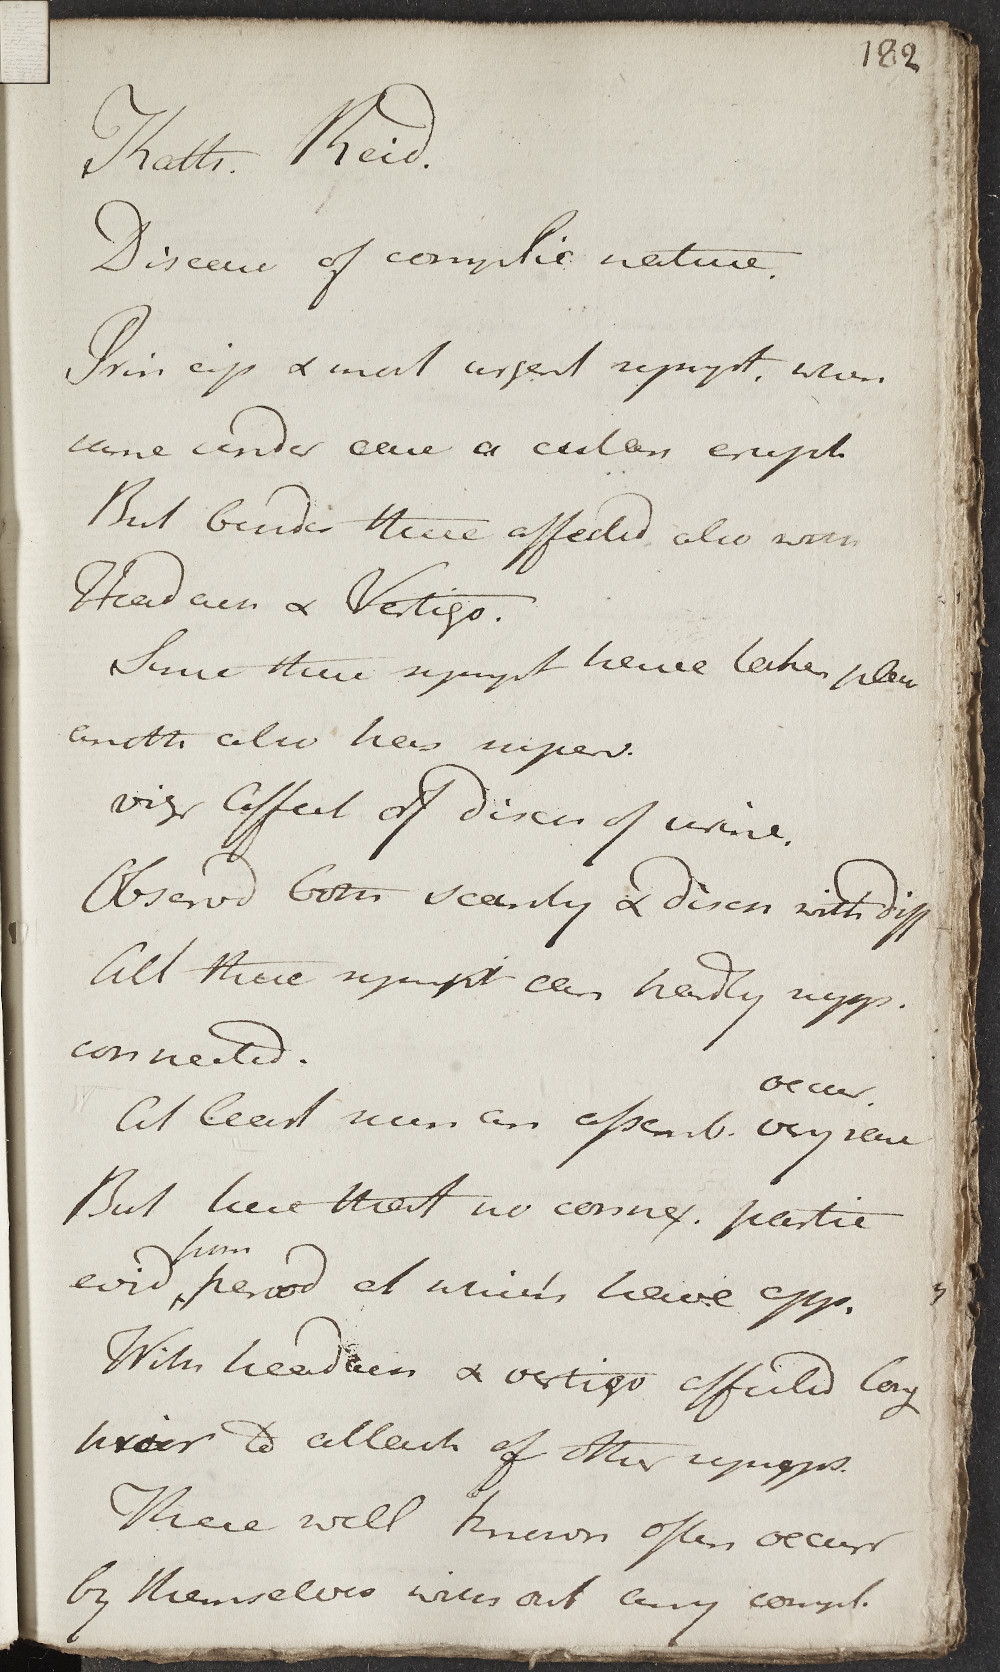 182
Kath. Reid.
Disease of complic nature.
Princip & most urgent sympt. when
came under care a cutan erupt.
But besides these affected also with
Headach & Vertigo.
Since these sympt have taken place
anoth also has superv.
viz Affect of disch of urine.
Observd both scanty & disch with diff
All these sympt can hardly supp.
connected.
occur.
At least such an assemb. very rare
But here that no connex. partic
from
evid period at which have app.
With headach & vertigo affected long
prior to attack of other symps.
These well known often occurr
by themselves without any compl.